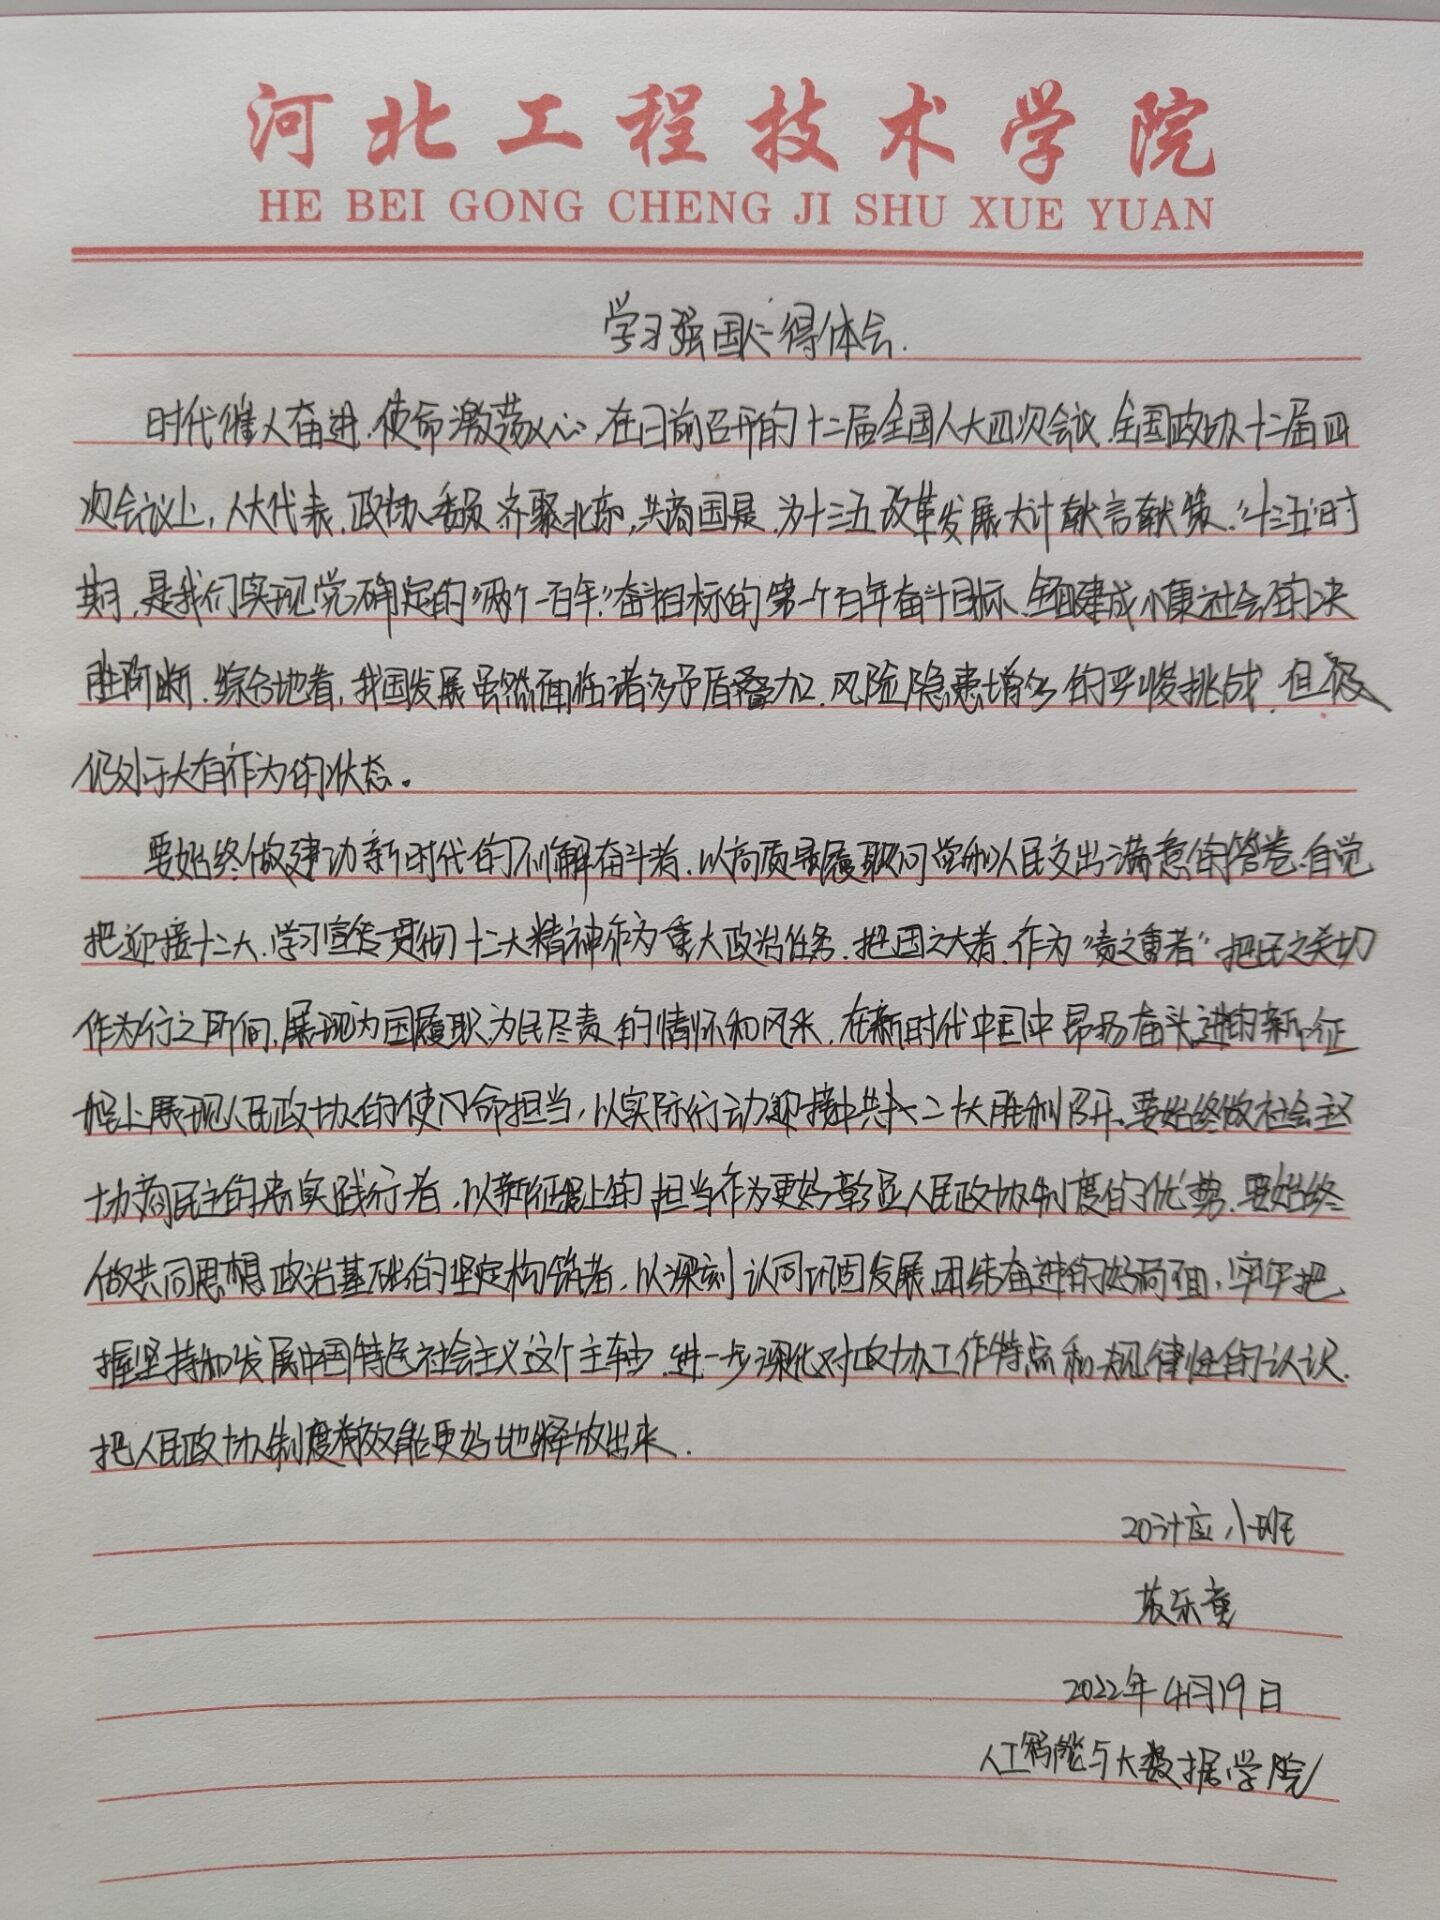 河北工程技术学院
HE BEI GONG CHENG JI SHU XUE YUAN
学习强国心得体会.
时代催人奋进.使命激荡人心,在日前召开的十二届全国人大四次会议.全国政协十二届四
次会议上,人大代表.政协委员齐聚北京,共商国是.为十三五改革发展大计献言献策."十三五"时
期,是我们实现党确定的"两个一百年"奋斗目标的第一个百年奋斗目标.全面建成小康社会的决
胜阶断.综合地看,我国发展虽然面临诸多矛盾叠加.风险隐患增多的严峻挑战.但
仍处于大有作为的状态。
要始终做建功新时代的不懈奋斗者.以高质量履职向党和人民交出满意的答卷.自觉
把迎接十二大.学习宣传贯彻十二大精神作为重大政治任务.把国之大者.作为"责之重者"把民之关切
作为行之所向,展现为国履职.为民尽责的情怀和风采.在新时代中国中昂扬奋头进的新征
程上展现人民政协的使命担当,以实际行动迎接中共十二大胜利召开.要始终做社会主义
协商民主的实践行者.以新征程上的担当作为更好彰显人民政协制度的优势.要始终
做共同思想政治基础的坚定构筑者.以深刻认同巩固发展.团结奋进的好局面,牢牢把
握坚持和发展中国特色社会主义这个主轴.进一步深化对政协工作特点和规律性的认识.
把人民政协制度效能更好地释放出来.
20计应小班
苏乐童
2022年4月19日
人工智能与大数据学院